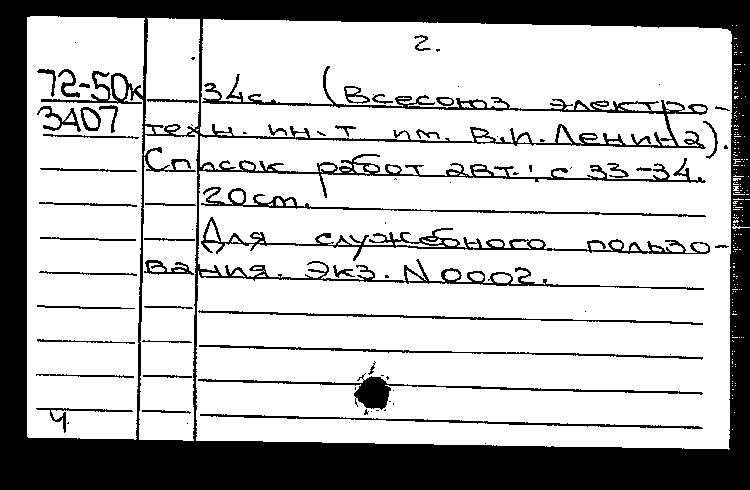 2.
72-50к 34с. (Всесоюз. электро-
3407 техн. ин-т им. В.И.Ленина).
Список работ авт.: с 33-34.
20см.
Для служебного пользо-
вания. Экз. N 0002.
4